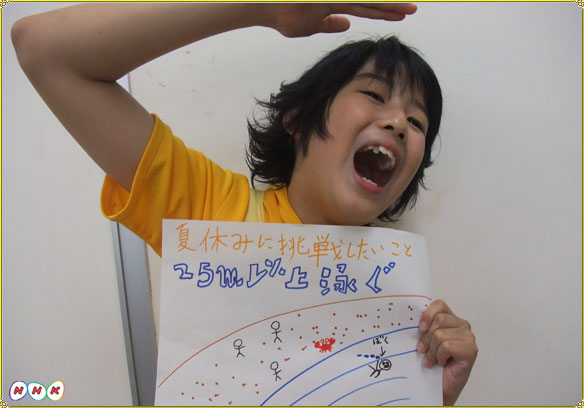 夏休みに挑戦したいこと
25m以上泳ぐ
ぼく
NHK